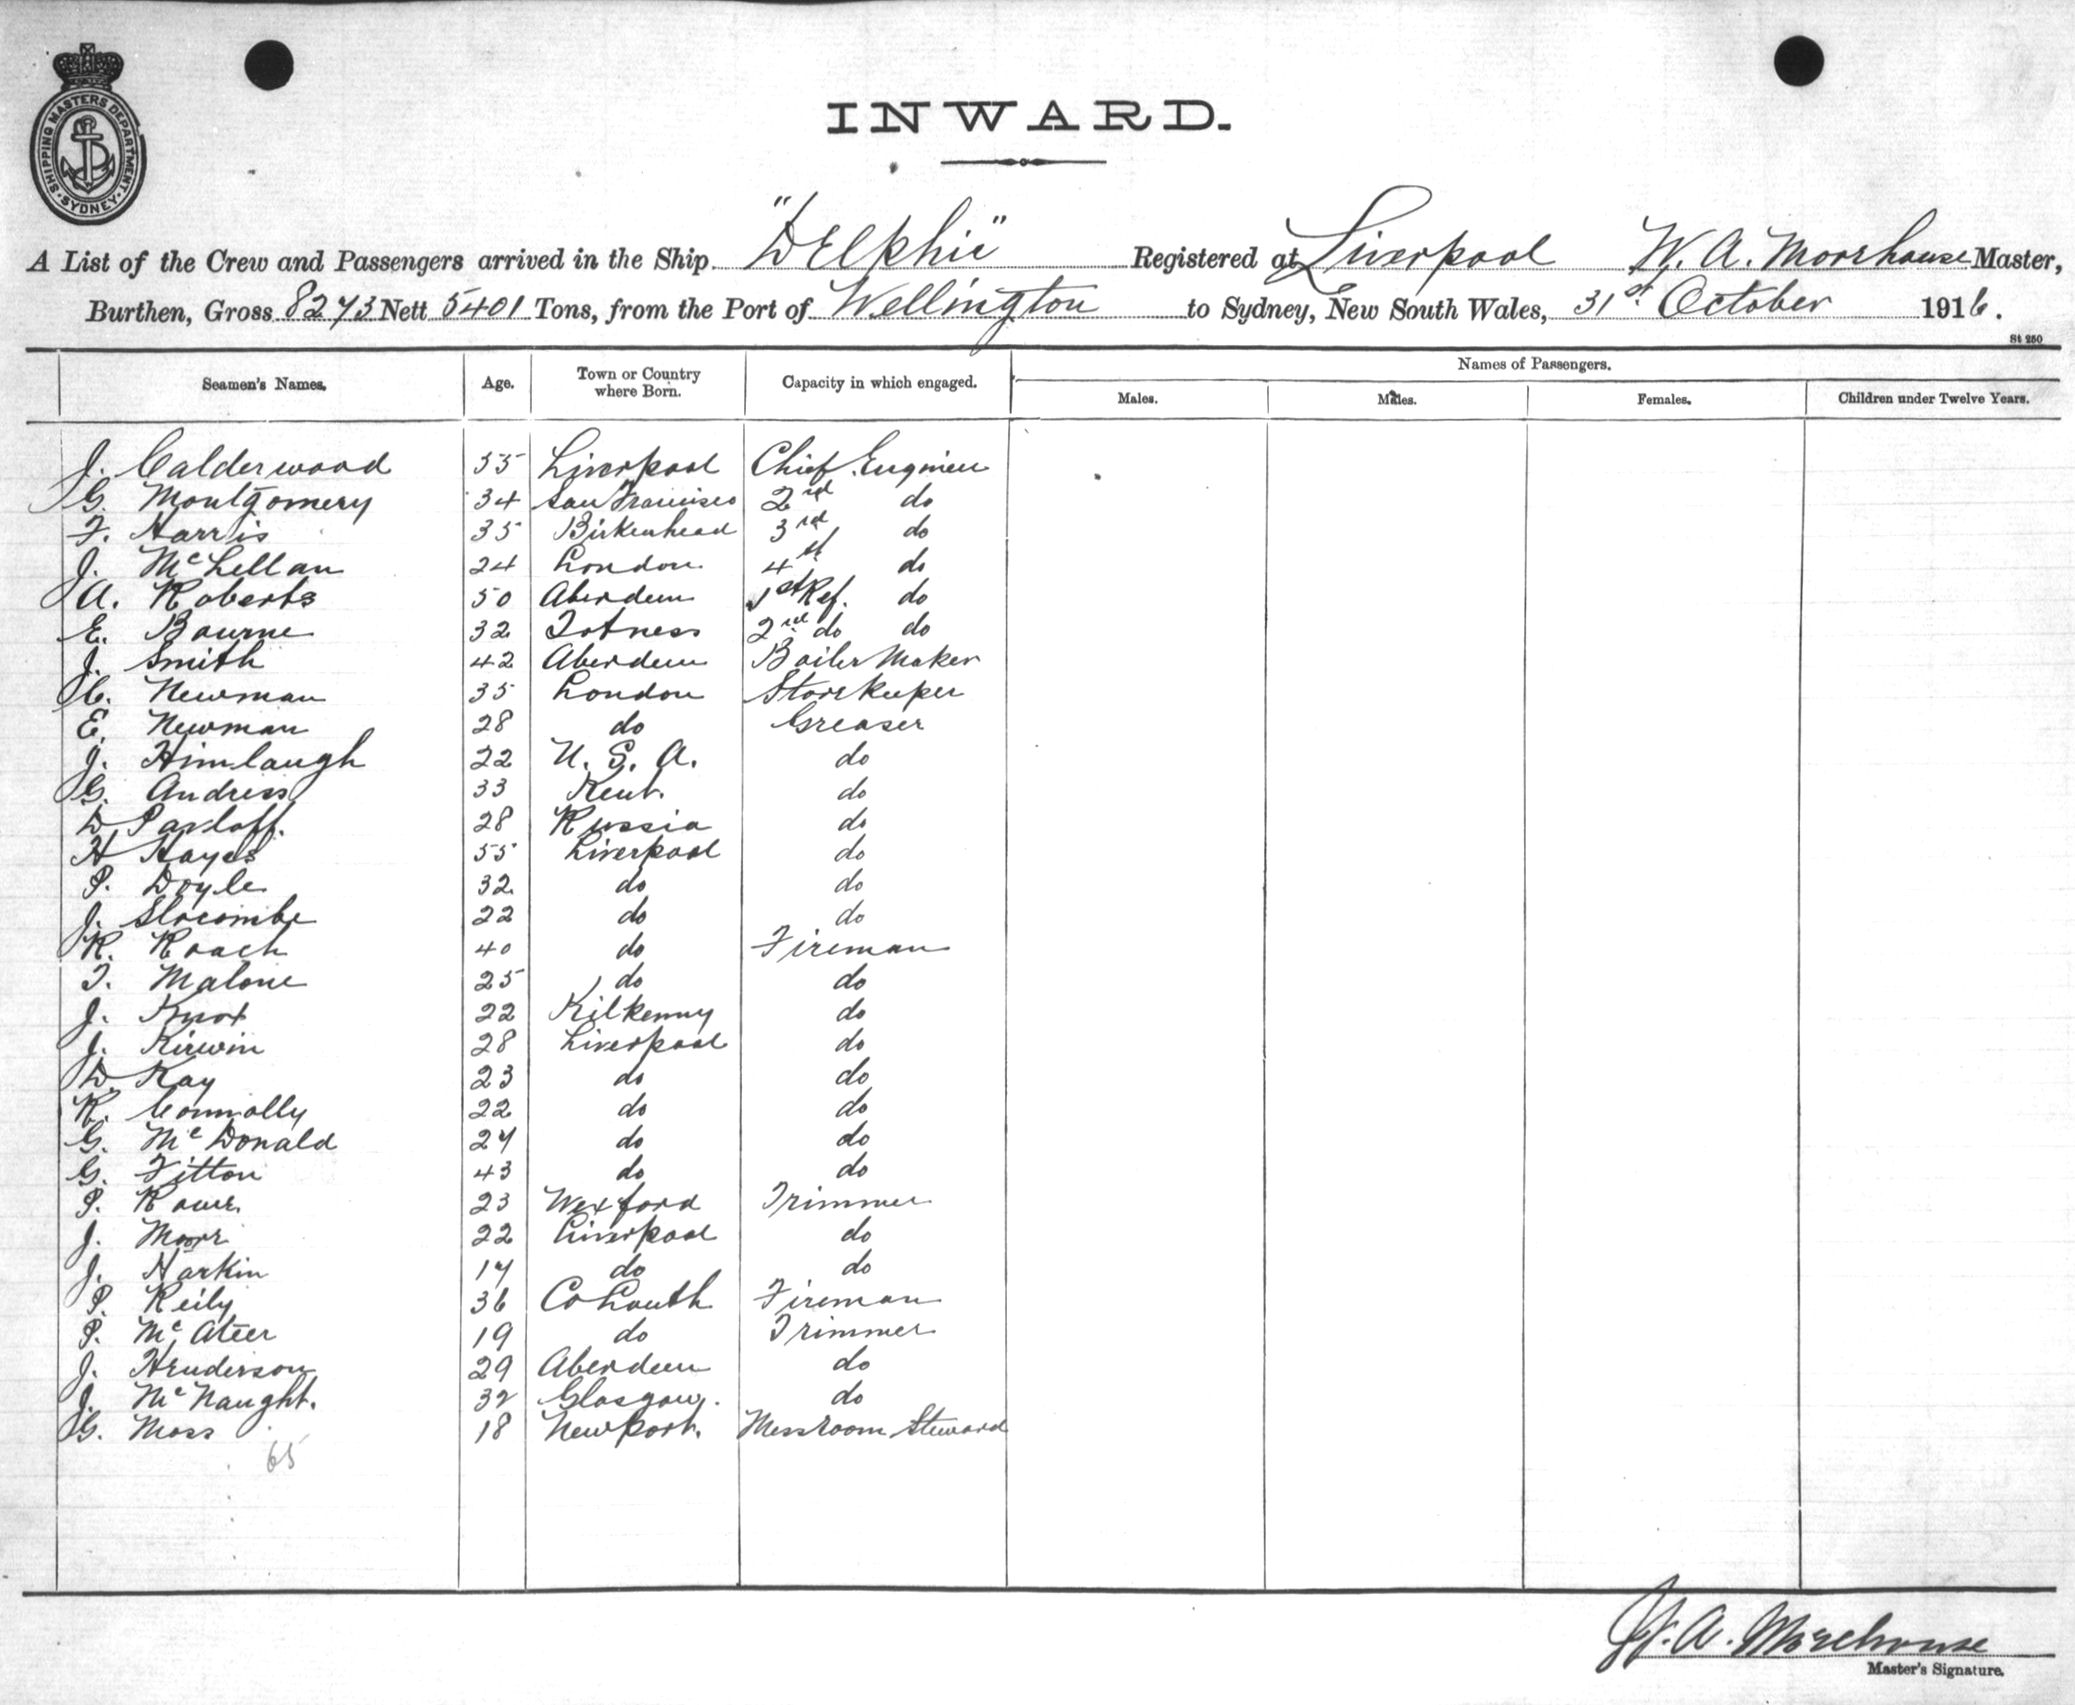 SHIPPING MASTERS DEPARTMENT
SYDNEY
INWARD.
A List of the Crew and Passengers arrived in the Ship "Delphic" Registered at Liverpool W. A. Moorhouse Master,
Burthen, Gross 8273 Nett 5401 Tons, from the Port of Wellington to Sydney, New South Wales, 31st October 1916.
St 250
Seamen's Names. Age. Town or Country where Born. Capacity in which engaged. Names of Passengers.
Males. Males. Females. Children under Twelve Years.
J. Calderwood 55 Liverpool Chief Engineer
G. Montgomery 34 San Francisco 2nd do
F. Harris 35 Birkenhead 3rd do
J. McLellan 24 London 4th do
A. Roberts 50 Aberdeen 1st Ref. do
E. Bourne 32 Totness 2nd do do
J. Smith 42 Aberdeen Boiler Maker
C. Newman 35 London Storekeeper
E. Newman 28 do Greaser
J. Himlaugh 22 U. S. A. do
G. Andress 33 Kent. do
D. Pavloff. 28 Russia do
H Hayes 55 Liverpool do
P. Doyle 32 do do
J. Slocombe 22 do do
R. Roach 40 do Fireman
T. Malone 25 do do
J. Knox 22 Kilkenny do
J. Kirwin 28 Liverpool do
D. Kay 23 do do
R. Connolly 22 do do
G. McDonald 27 do do
G. Fitton 43 do do
P. Rowe 23 Wexford Trimmer
J. Moore 22 Liverpool do
J. Harkin 17 do do
P. Reily 36 Co Louth Fireman
P. McAteer 19 do Trimmer
J. Henderson 29 Aberdeen do
J. McNaught. 32 Glasgow. do
G. Moss 18 Newport. Messroom Steward
65
W. A. Morehouse
Master's Signature.